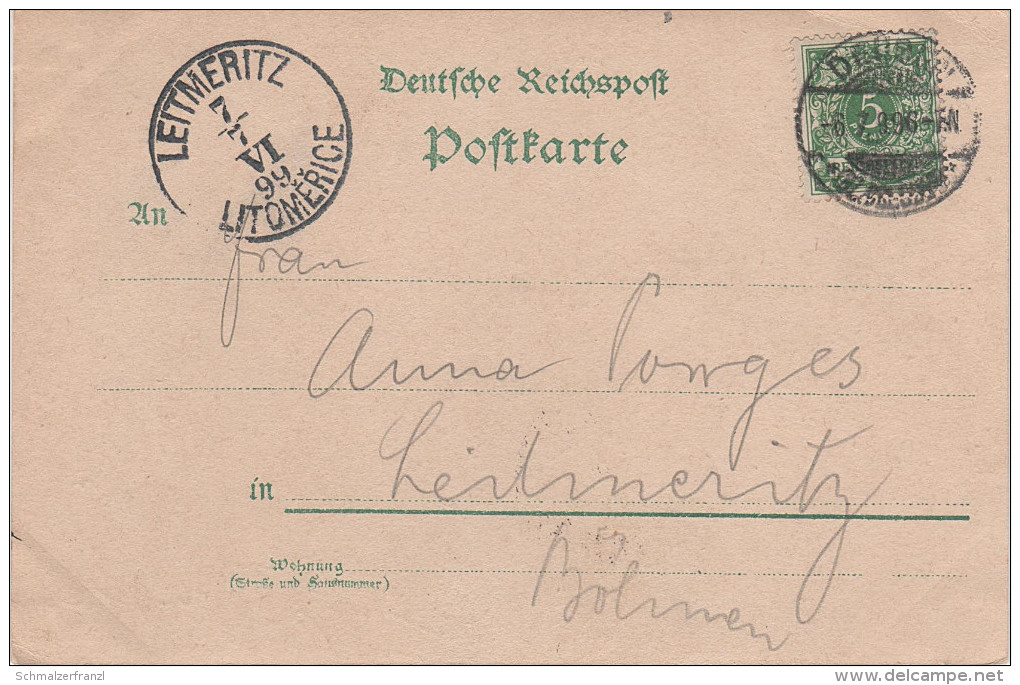 LEITMERITZ
7/VI
99
LITOMĚŘICE
Deutsche Reichspost
Postkarte
5
An
Frau
Anna Porges
in Leitmeritz
Wohnung
(Straße und Hausnummer)
Böhmen
Schmalzerfranzl
delcampe.net